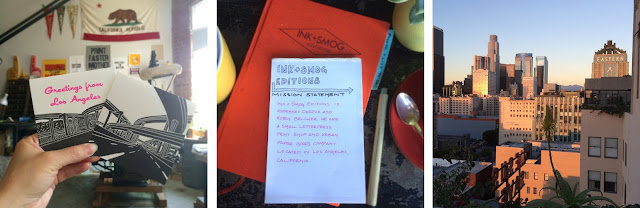 CALIFORNIA REPUBLIC
PRINT
FASTER
Greetings from
Los Angeles
INK+SMOG
INK+SMOG
EDITIONS
MISSION STATEMENT
INK + SMOG EDITIONS IS
AND
WE ARE
A SMALL LETTERPRESS
PRINT SHOP AND
PAPER GOODS COMPANY
LOCATED IN LOS ANGELES,
CALIFORNIA.
EASTERN